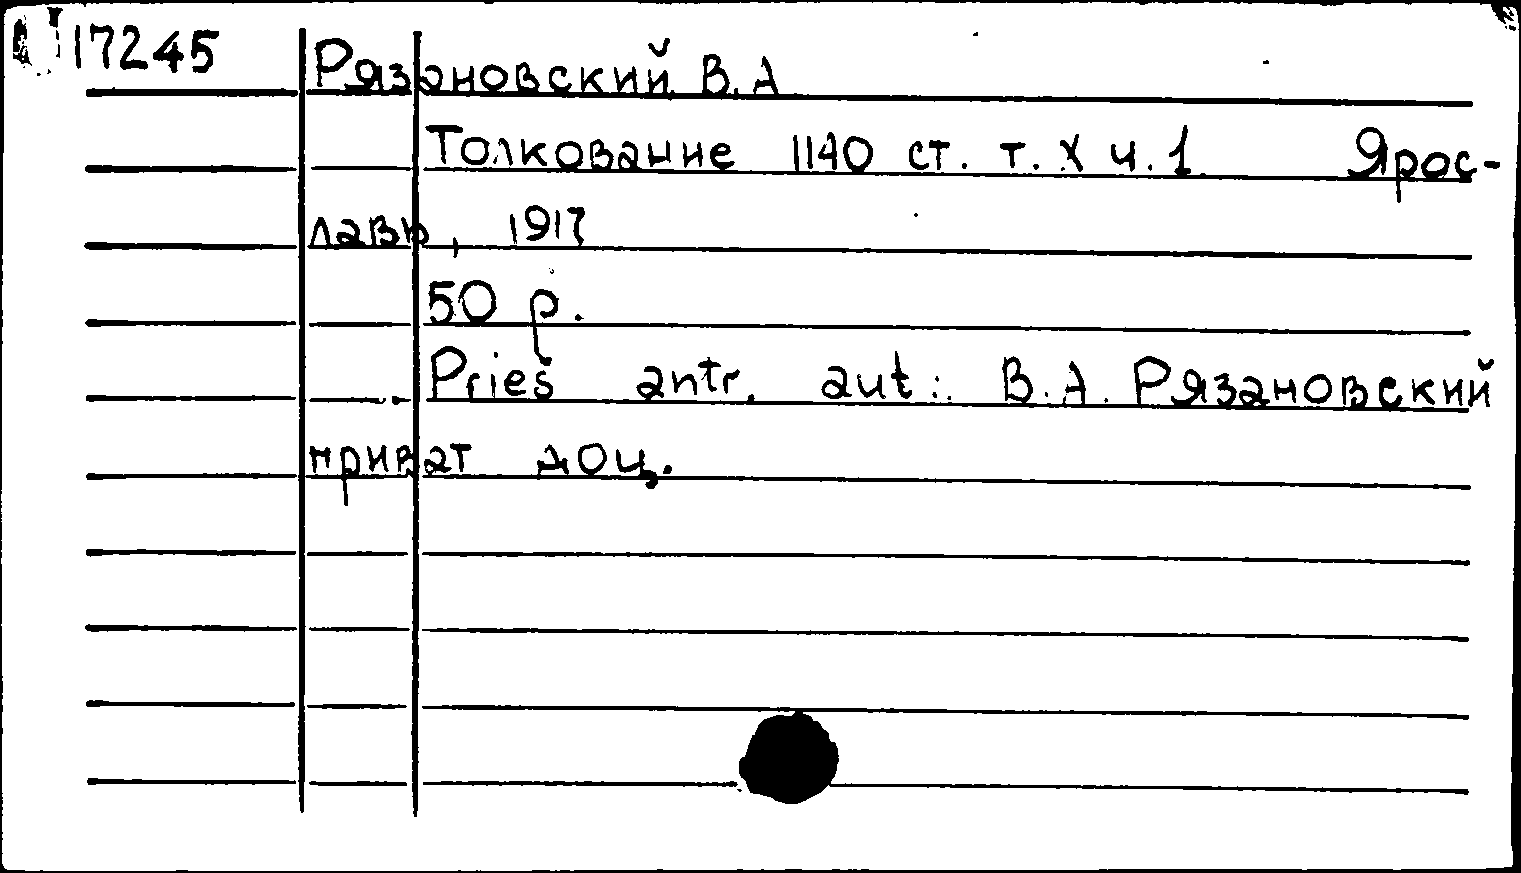 17245
Рязановский В.А
Толкование 1140 ст. т. X ч. 1. Ярос-
лавь, 1917
50 р.
Prieš antr. aut.: В.А. Рязановский
приват доц.